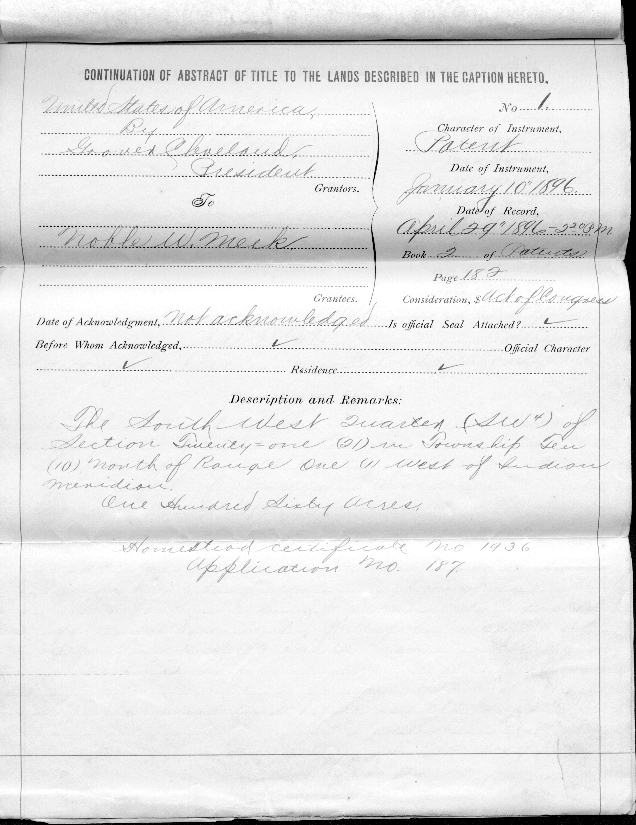 CONTINUATION OF ABSTRACT OF TITLE TO THE LANDS DESCRIBED IN THE CAPTION HERETO.
United States of America,
By
Grover Cleveland,
President
Grantors.
To
Noble W. Meek
Grantees.
No 1.
Character of Instrument,
Patent
Date of Instrument,
January 10" 1896.
Date of Record,
April 29" 1896 - 2 P.M
Book 2 of Patents
Page 182
Consideration, $ Act of Congress
Date of Acknowledgment, Not acknowledged Is official Seal Attached? ✓
Before Whom Acknowledged, ✓ Official Character
✓ Residence ✓
Description and Remarks:
The South West Quarter (SW4) of
Section Twenty=one (21) in Township Ten
(10) North of Range One (1) West of Indian
Meridian.
One Hundred Sixty Acres,
Homestead certificate No 1936
Application No. 187.